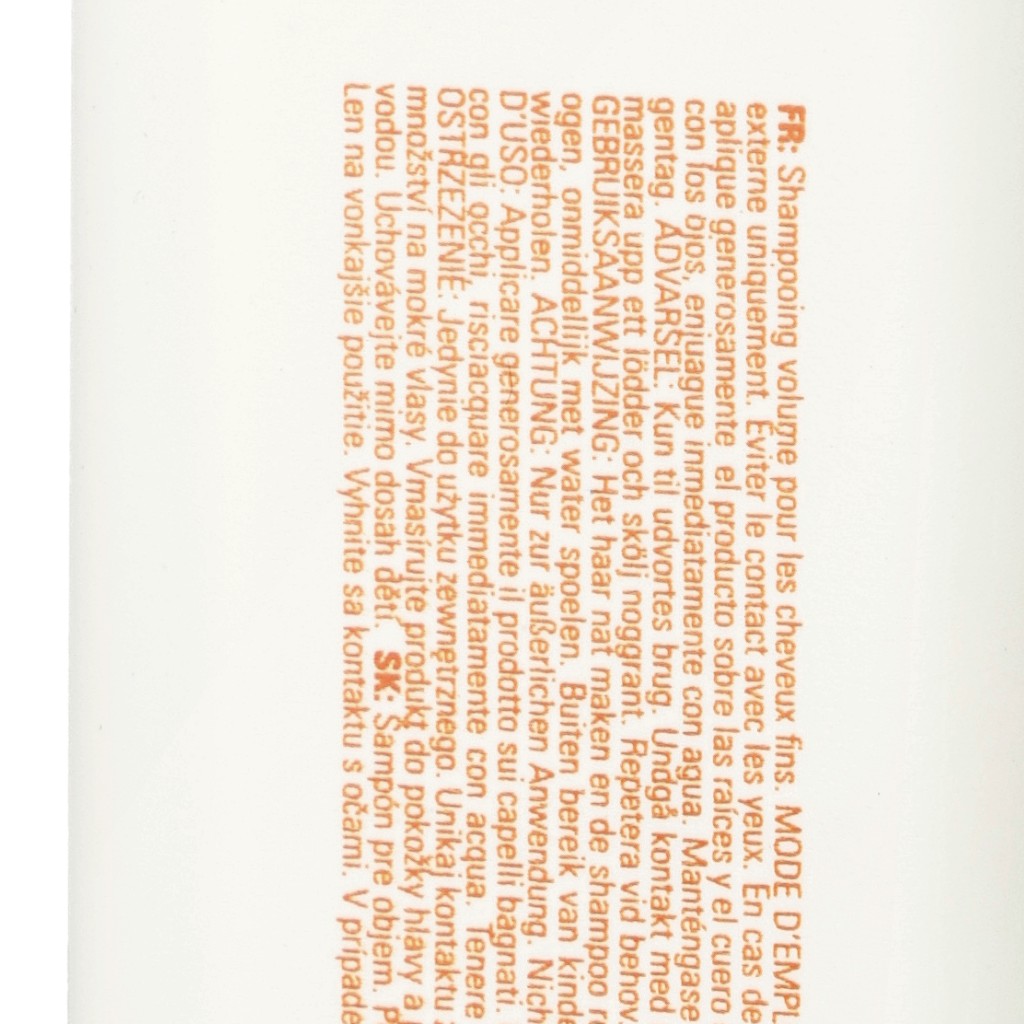 FR: Shampooing volume pour les cheveux fins. MODE D'EMPL
externe uniquement. Éviter le contact avec les yeux. En cas de
aplique generosamente el producto sobre las raíces y el cuero
con los ojos, enjuague inmediatamente con agua. Manténgase
gentag. ADVARSEL: Kun til udvortes brug. Undgå kontakt med
massera upp ett lödder och skölj noggrant. Repetera vid behov.
GEBRUIKSAANWIJZING: Het haar nat maken en de shampoo r
ogen, onmiddellijk met water spoelen. Buiten bereik van kinde
wiederholen. ACHTUNG: Nur zur äußerlichen Anwendung. Nich
D'USO: Applicare generosamente il prodotto sui capelli bagnati.
con gli occhi, risciacquare immediatamente con acqua. Tenere
OSTRZEŻENIE: Jedynie do użytku zewnętrznego. Unikaj kontaktu
množství na mokré vlasy. Vmasírujte produkt do pokožky hlavy a
vodou. Uchovávejte mimo dosah dětí. SK: Šampón pre objem. P
Len na vonkajšie použitie. Vyhnite sa kontaktu s očami. V prípade